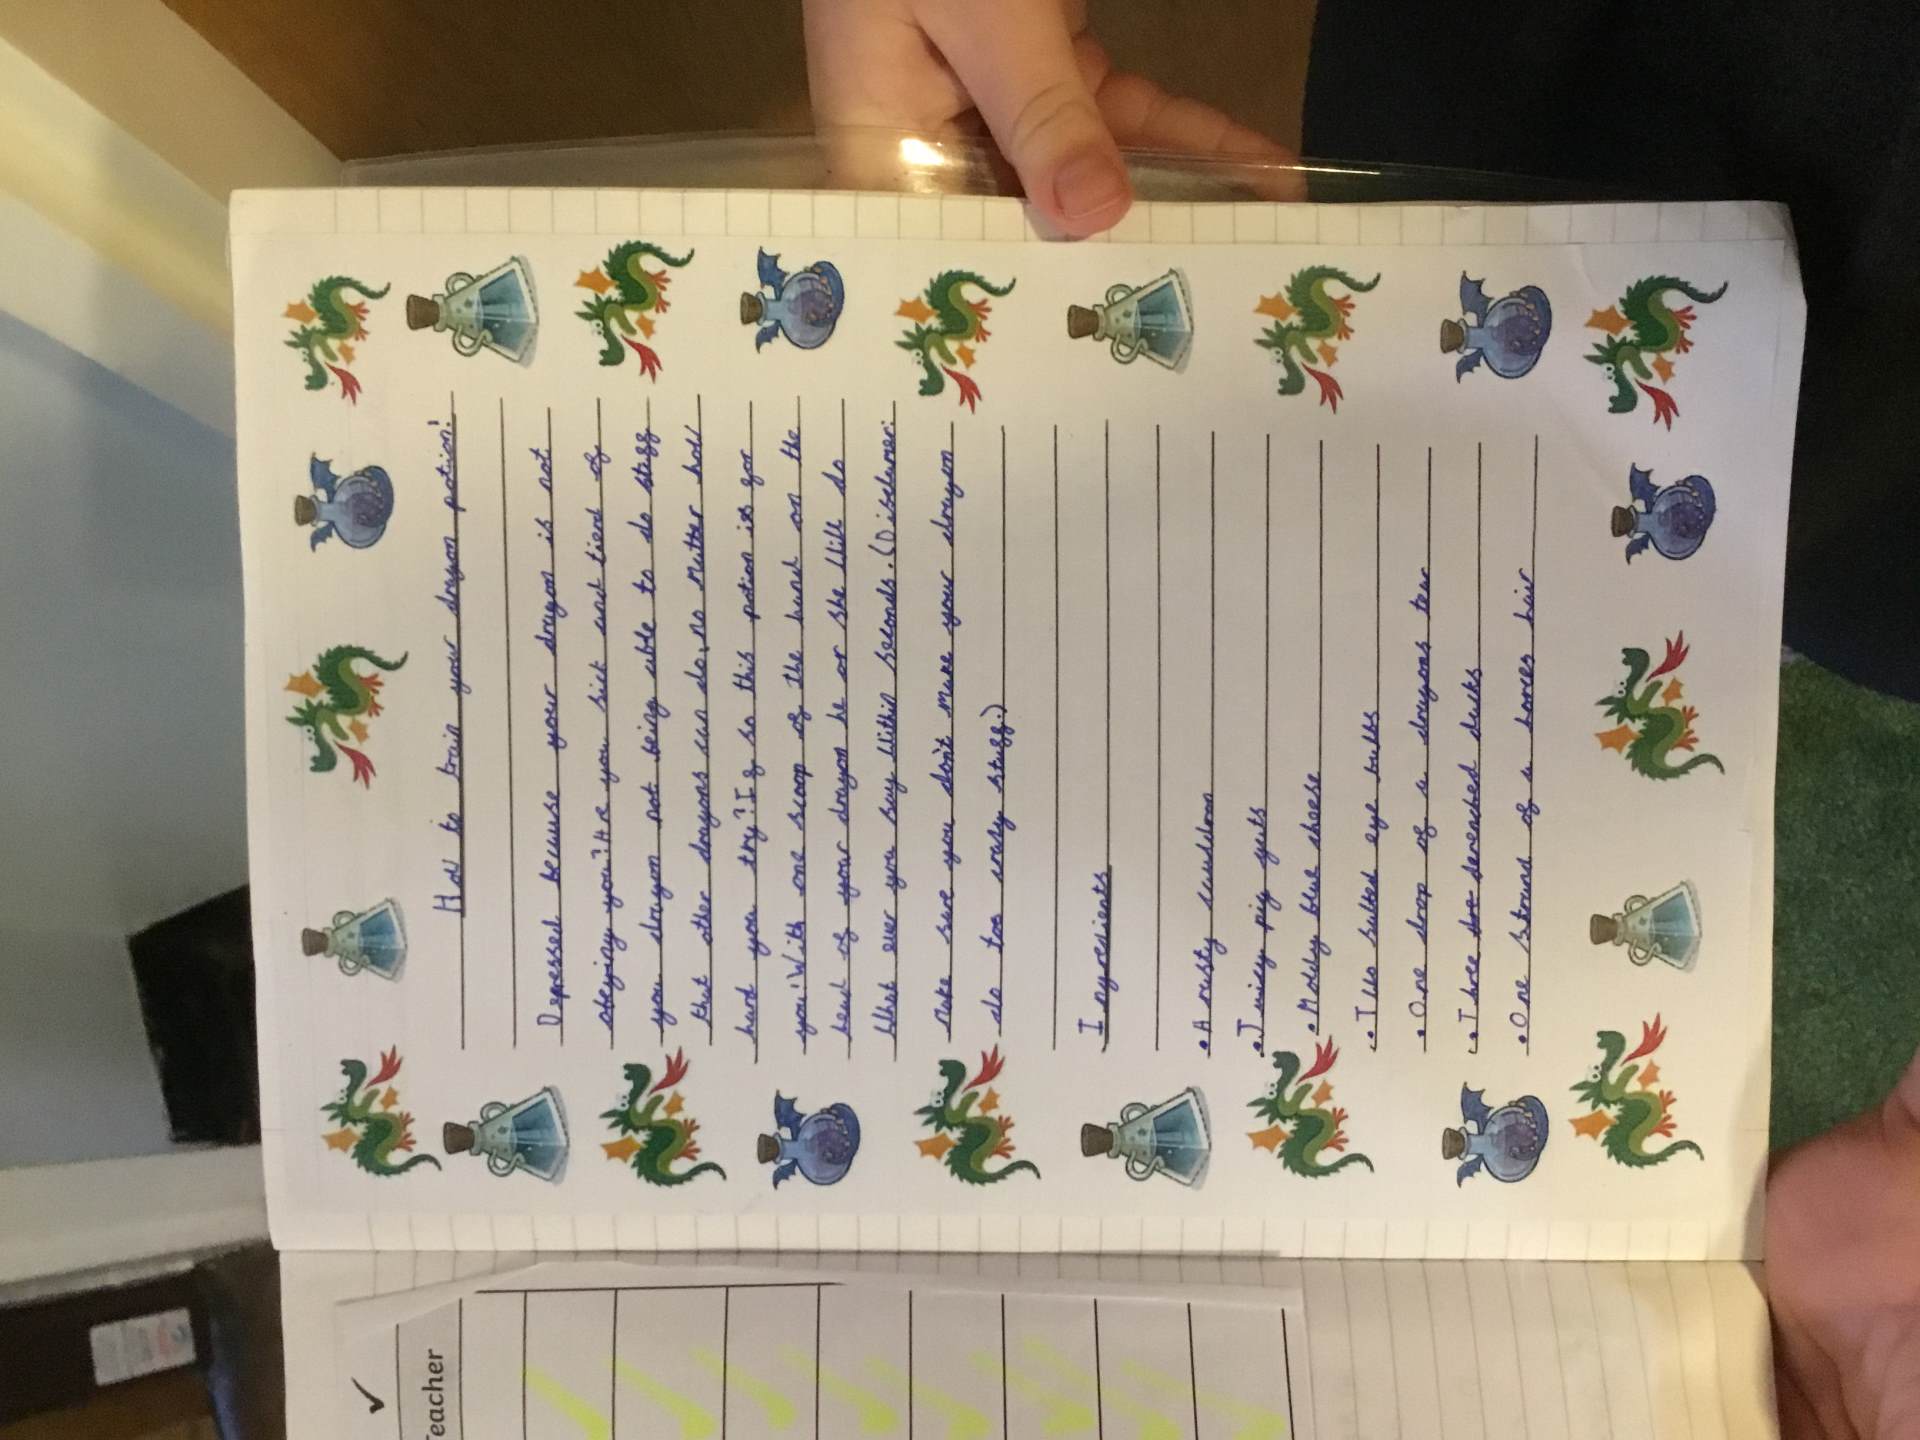 How to train your dragon potion!
Depressed because your dragon is not
obeying you? Are you sick and tierd of
you dragon not being able to do stuff
that other dragons can do, no matter how
hard you try? If so this potion is for
you! With one scoop of the hand on the
head of your dragon he or she will do
what ever you say within seconds. (Disclamer:
Make sure you don't make your dragon
do too crazy stuff.)
Ingredients
• A rusty cauldron
• Juicy pig guts
• Moldy blue sheese
• Two salted eye balls
• One drop of a dragons tear
• Three dre drenched ducks
• One strand of a horses hair
Teacher